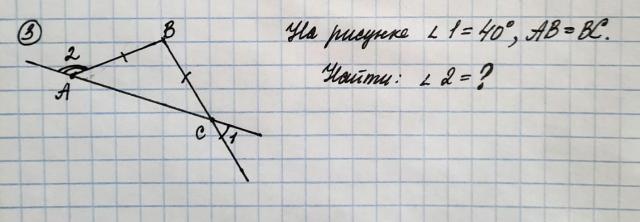 3
На рисунке ∠1=40°, AB=BC.
Найти: ∠2=?
B
2
A
C
1